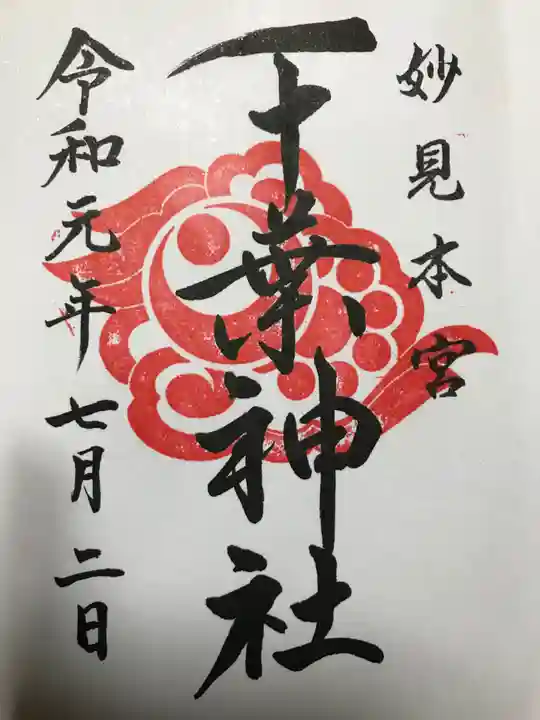 妙見本宮
千葉神社
令和元年七月二日